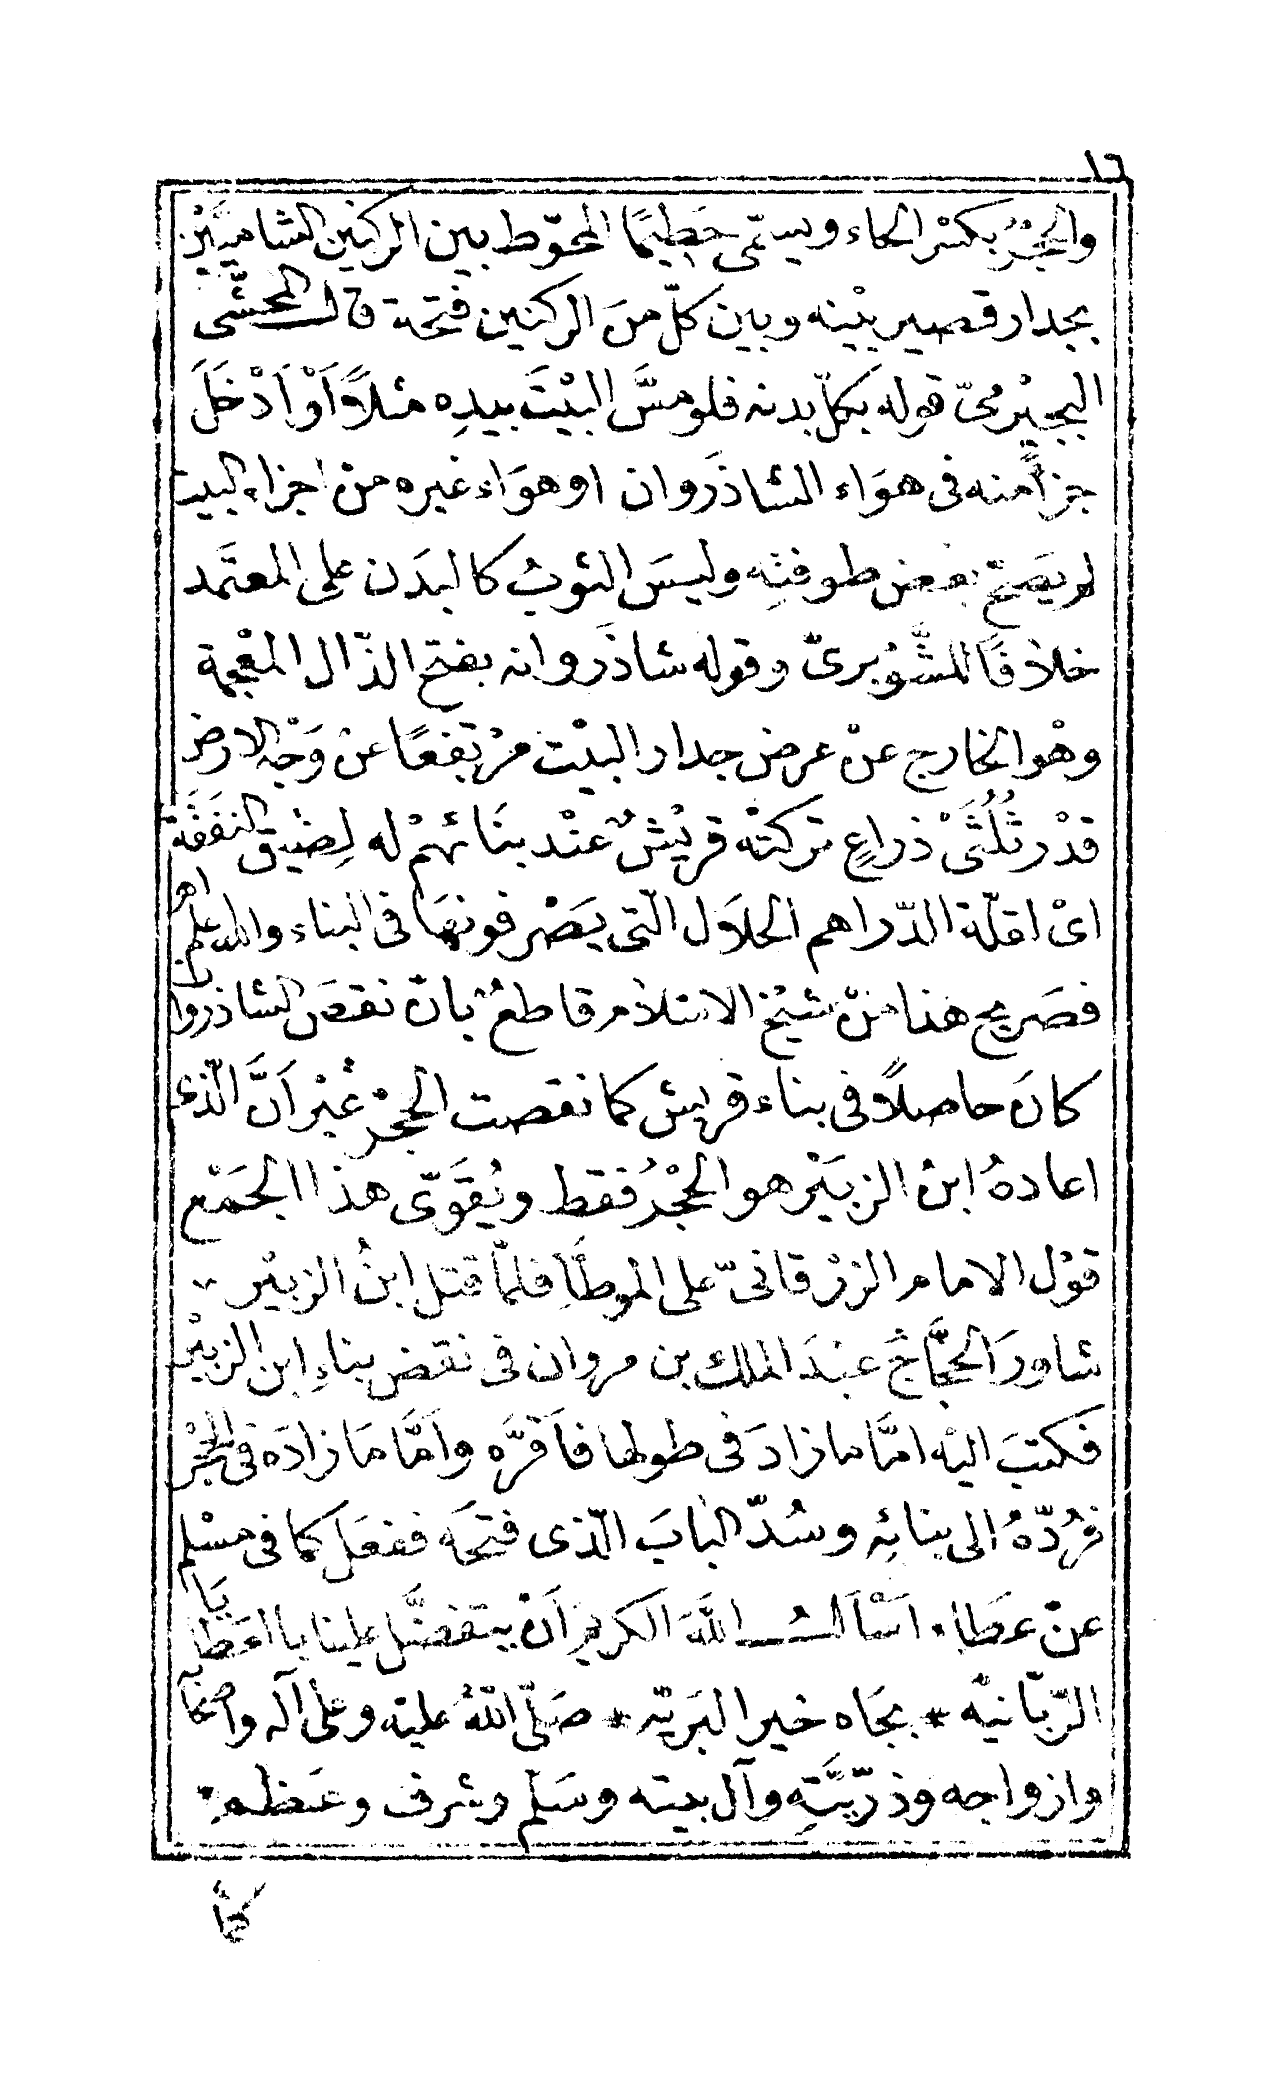 ١٦
والحِجْرُ بكسْر الحاء ويسمّى حَطِيمًا المحوّط بين الركنين الشاميَّيْن
بجدار قصير بيْنه وبين كلّ منَ الركنين فتحة قال المحشّى
البجيْرمىّ قوله بكلّ بدنه فلو مسَّ البيْتَ بيدِه مثلاً اَوْ اَدْخَلَ
جزأً منه فى هوَاء الشاذَروان او هوَاء غيره منْ اجزاء البيت
لم يصَحّ بعض طوفتِه وليسَ الثوبُ كالبدَن على المعتَمد
خلافًا للشَّوْبرىّ وقوله شاذَروانه بفتح الذّال المعْجمة
وهْو الخارج عنْ عرض جدار البيْت مرْتفعًا عنْ وَجْه الارض
قدْر ثُلُثَىْ ذراعٍ تركتْه قريْشٌ عنْد بنَائهمْ له لِضيْق النفَقَة
اىْ لقلّة الدّراهم الحلاَل الّتى يَصْرفونهَا فى البناء والله اعلم اھ
فصَريح هذا منْ شيْخ الاسْلام قاطعٌ بانّ نقصَ الشاذروان
كانَ حاصلاً فى بناء قريش كما نقصت الحِجْر غيْر اَنَّ الّذى
اعادهُ ابنُ الزبيْر هو الحِجْرُ فقط ويُقَوّى هذا الجَمْع
قوْل الامام الزرْقانىّ على الموطأِ فلمّا قتل ابنُ الزبيْر
شاورَ الحَجَّاجُ عبْدَ الملك بن مروان فى نقض بناءِ ابن الزبيْر
فكتبَ اليْه امَّا ما زادَ فى طولها فأَقرَّه وأمَّا مَا زادَه فى الحِجْر
فرُدّهُ الى بنائه وسُدّ البابَ الّذى فتحَه ففعَل كما فى مسْلم
عنْ عطَاء، اسْألُ اللهَ الكريم اَنْ يتفضَّل علينا بالعَطايَا
الرّبّانيّه * بجَاه خير البَريّه * صَلّى اللهُ عليْه وعلى آله واصحَابه
وازواجه وذرّيَّتِه وآل بيته وسَلّم وشرف وعَظم
كما